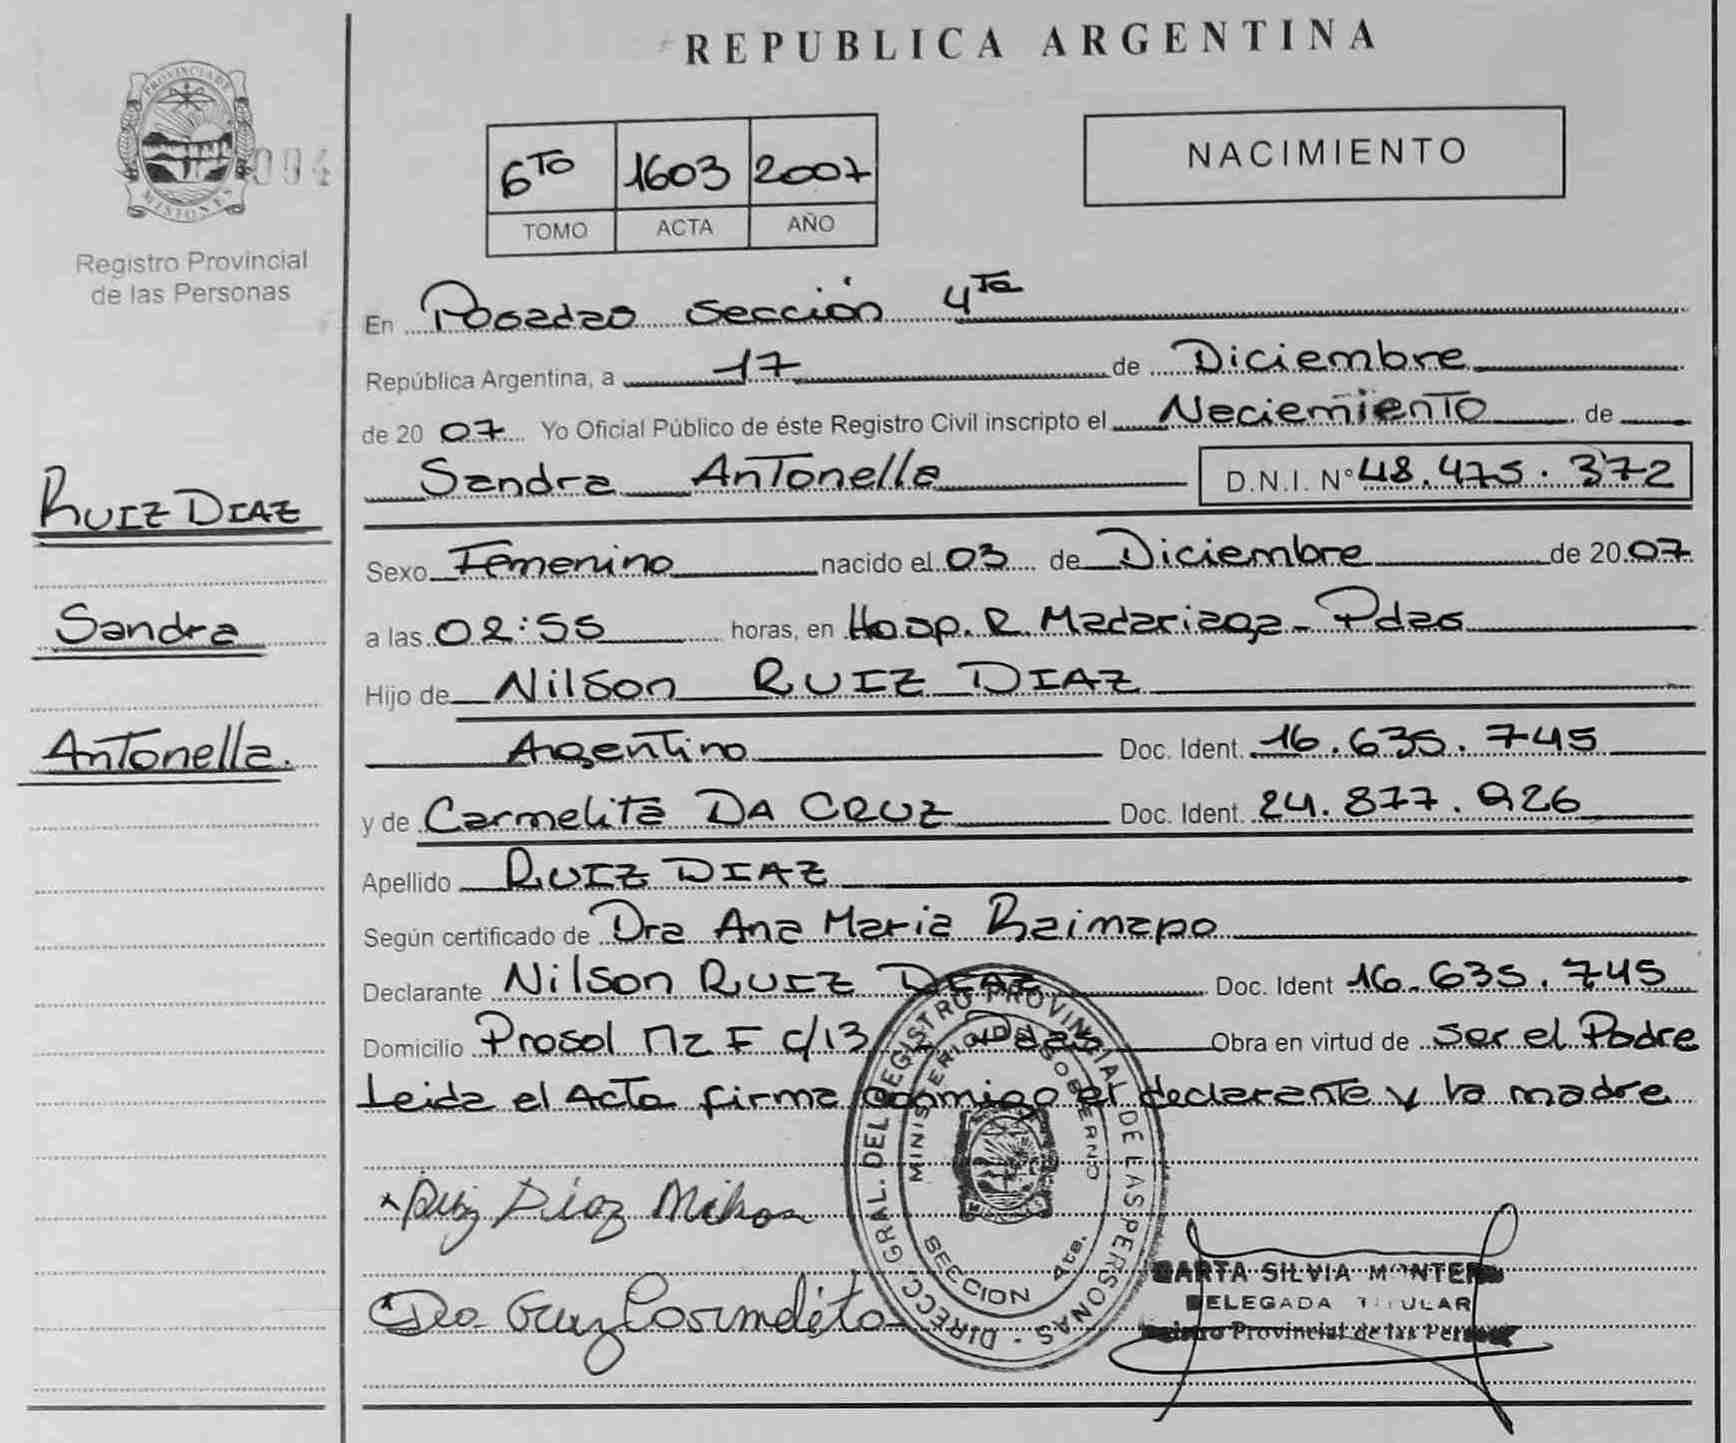 REPUBLICA ARGENTINA
PROVINCIA DE
MISIONES
094
Registro Provincial
de las Personas
6TO 1603 2007
TOMO ACTA AÑO
NACIMIENTO
En Posadas sección 4Ta
República Argentina, a 17 de Diciembre
de 2007 Yo Oficial Público de éste Registro Civil inscripto el Neciemiento de
Sandra Antonella D.N.I. N° 48.475.372
RUIZ DIAZ
Sandra
Antonella.
Sexo Femenino nacido el 03 de Diciembre de 2007
a las 02:55 horas, en Hosp. R. Madariaga - Pdas
Hijo de Nilson RUIZ DIAZ
Argentino Doc. Ident. 16.635.745
y de Carmelita DA CRUZ Doc. Ident. 24.877.926
Apellido RUIZ DIAZ
Según certificado de Dra Ana Maria
Declarante Nilson RUIZ DIAZ Doc. Ident 16.635.745
Domicilio Prosol Mz F c/13 Pdas Obra en virtud de ser el Padre
Leida el Acta firma conmigo el declarante y la madre
DIRECC. GRAL. DEL REGISTRO PROVINCIAL DE LAS PERSONAS
MINISTERIO DE GOBIERNO
SECCION 4ta.
Ruiz Diaz
Da Cruz Carmelita
MARTA SILVIA MONTERO
DELEGADA TITULAR
Registro Provincial de las Personas